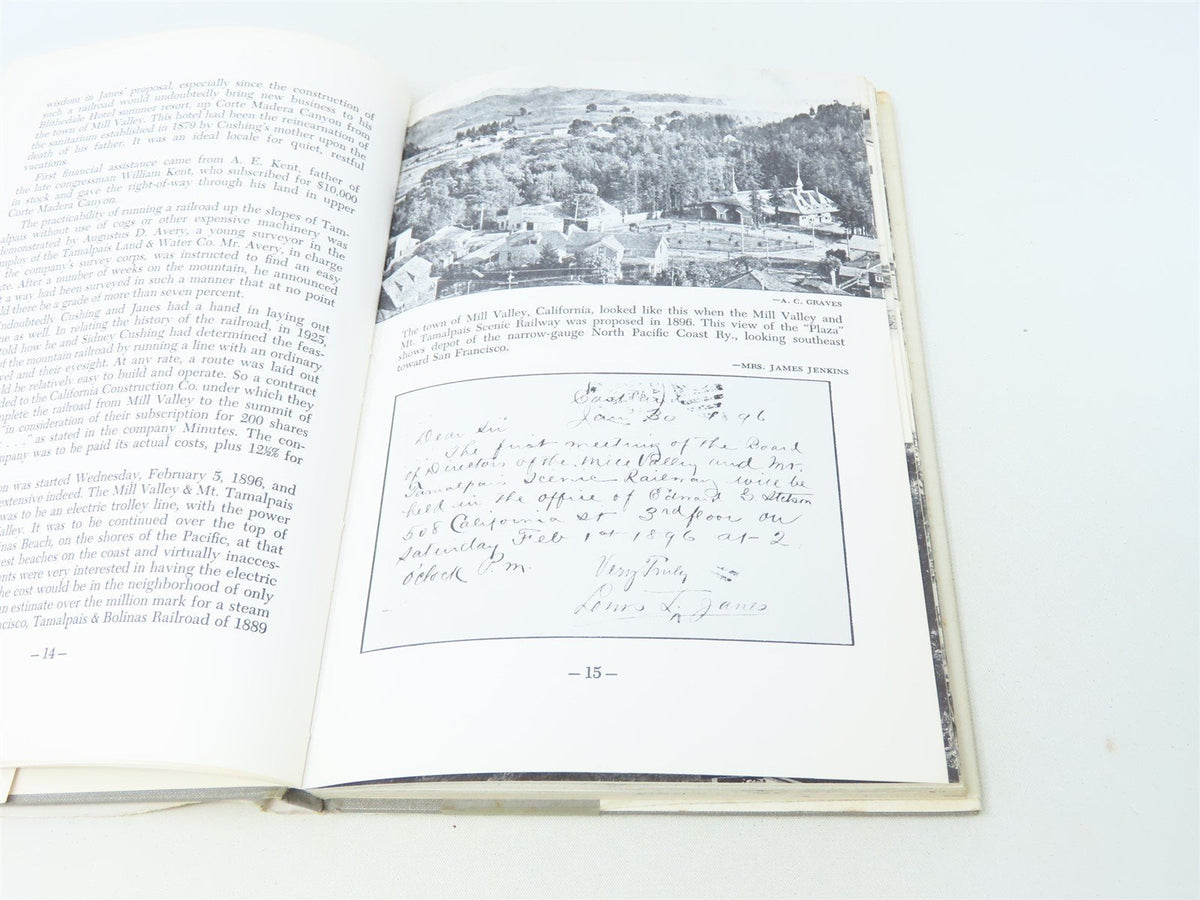 wisdom in Janes' proposal, especially since the construction of
such a railroad would undoubtedly bring new business to his
Blithedale Hotel summer resort, up Corte Madera Canyon from
the town of Mill Valley. This hotel had been the reincarnation of
the sanitarium established in 1879 by Cushing's mother upon the
death of his father. It was an ideal locale for quiet, restful
vacations.
First financial assistance came from A. E. Kent, father of
the late congressman William Kent, who subscribed for $10,000
in stock and gave the right-of-way through his land in upper
Corte Madera Canyon.
The practicability of running a railroad up the slopes of Tam-
alpais without use of cogs or other expensive machinery was
demonstrated by Augustus D. Avery, a young surveyor in the
employ of the Tamalpais Land & Water Co. Mr. Avery, in charge
the company's survey corps, was instructed to find an easy
te. After a number of weeks on the mountain, he announced
a way had been surveyed in such a manner that at no point
ld there be a grade of more than seven percent.
ndoubtedly Cushing and Janes had a hand in laying out
ne as well. In relating the history of the railroad, in 1925,
told how he and Sidney Cushing had determined the feas-
of the mountain railroad by running a line with an ordinary
vel and their eyesight. At any rate, a route was laid out
ld be relatively easy to build and operate. So a contract
ded to the California Construction Co. under which they
plete the railroad from Mill Valley to the summit of
" in consideration of their subscription for 200 shares
. . . ." as stated in the company Minutes. The con-
mpany was to be paid its actual costs, plus 12½% for
on was started Wednesday, February 5, 1896, and
extensive indeed. The Mill Valley & Mt. Tamalpais
was to be an electric trolley line, with the power
alley. It was to be continued over the top of
inas Beach, on the shores of the Pacific, at that
est beaches on the coast and virtually inacces-
nts were very interested in having the electric
he cost would be in the neighborhood of only
an estimate over the million mark for a steam
ncisco, Tamalpais & Bolinas Railroad of 1889
—14—
—A. C. GRAVES
The town of Mill Valley, California, looked like this when the Mill Valley and
Mt. Tamalpais Scenic Railway was proposed in 1896. This view of the "Plaza"
shows depot of the narrow-gauge North Pacific Coast Ry., looking southeast
toward San Francisco.
—MRS. JAMES JENKINS
Jan 30 1896
Dear Sir
The first meeting of the Board
of Directors of the Mill Valley and Mt.
Tamalpais Scenic Railway will be
held in the office of Edward G Stetson
508 California St 3rd floor on
Saturday Feb 1st 1896 at 2
o'clock P.m.
Very Truly
Louis L. Janes
—15—